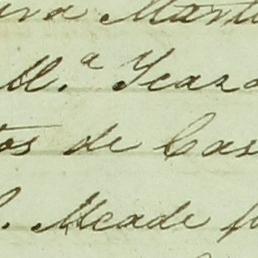 Mart
M.ª Ycaza
tos de Cas
. Meade f